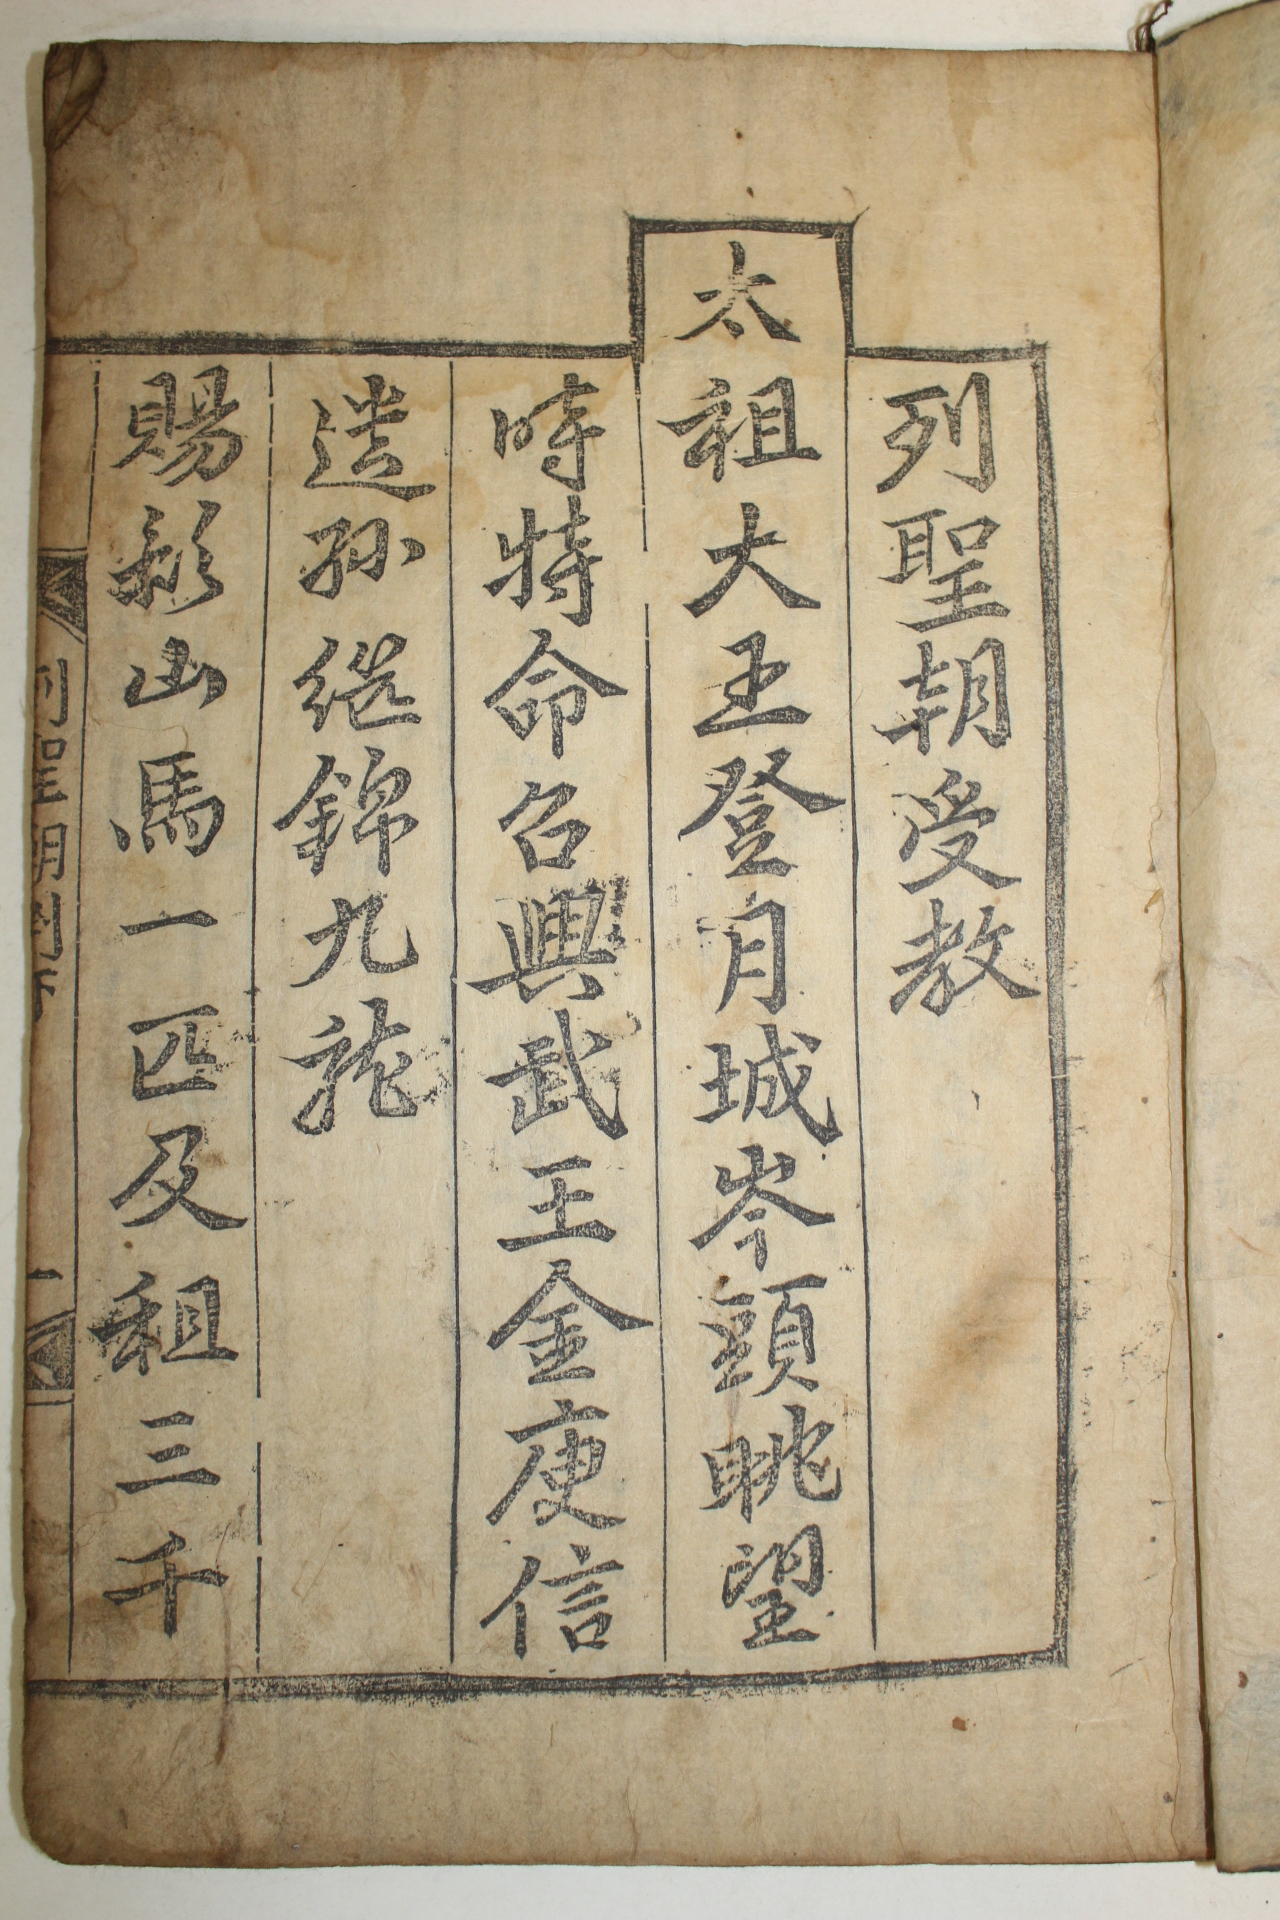 列聖朝受教
太祖大王登月城岑頭眺望
時特命召興武王金庾信
遺孫継錦九龍
賜影山馬一匹及租三千
列聖朝受教
一